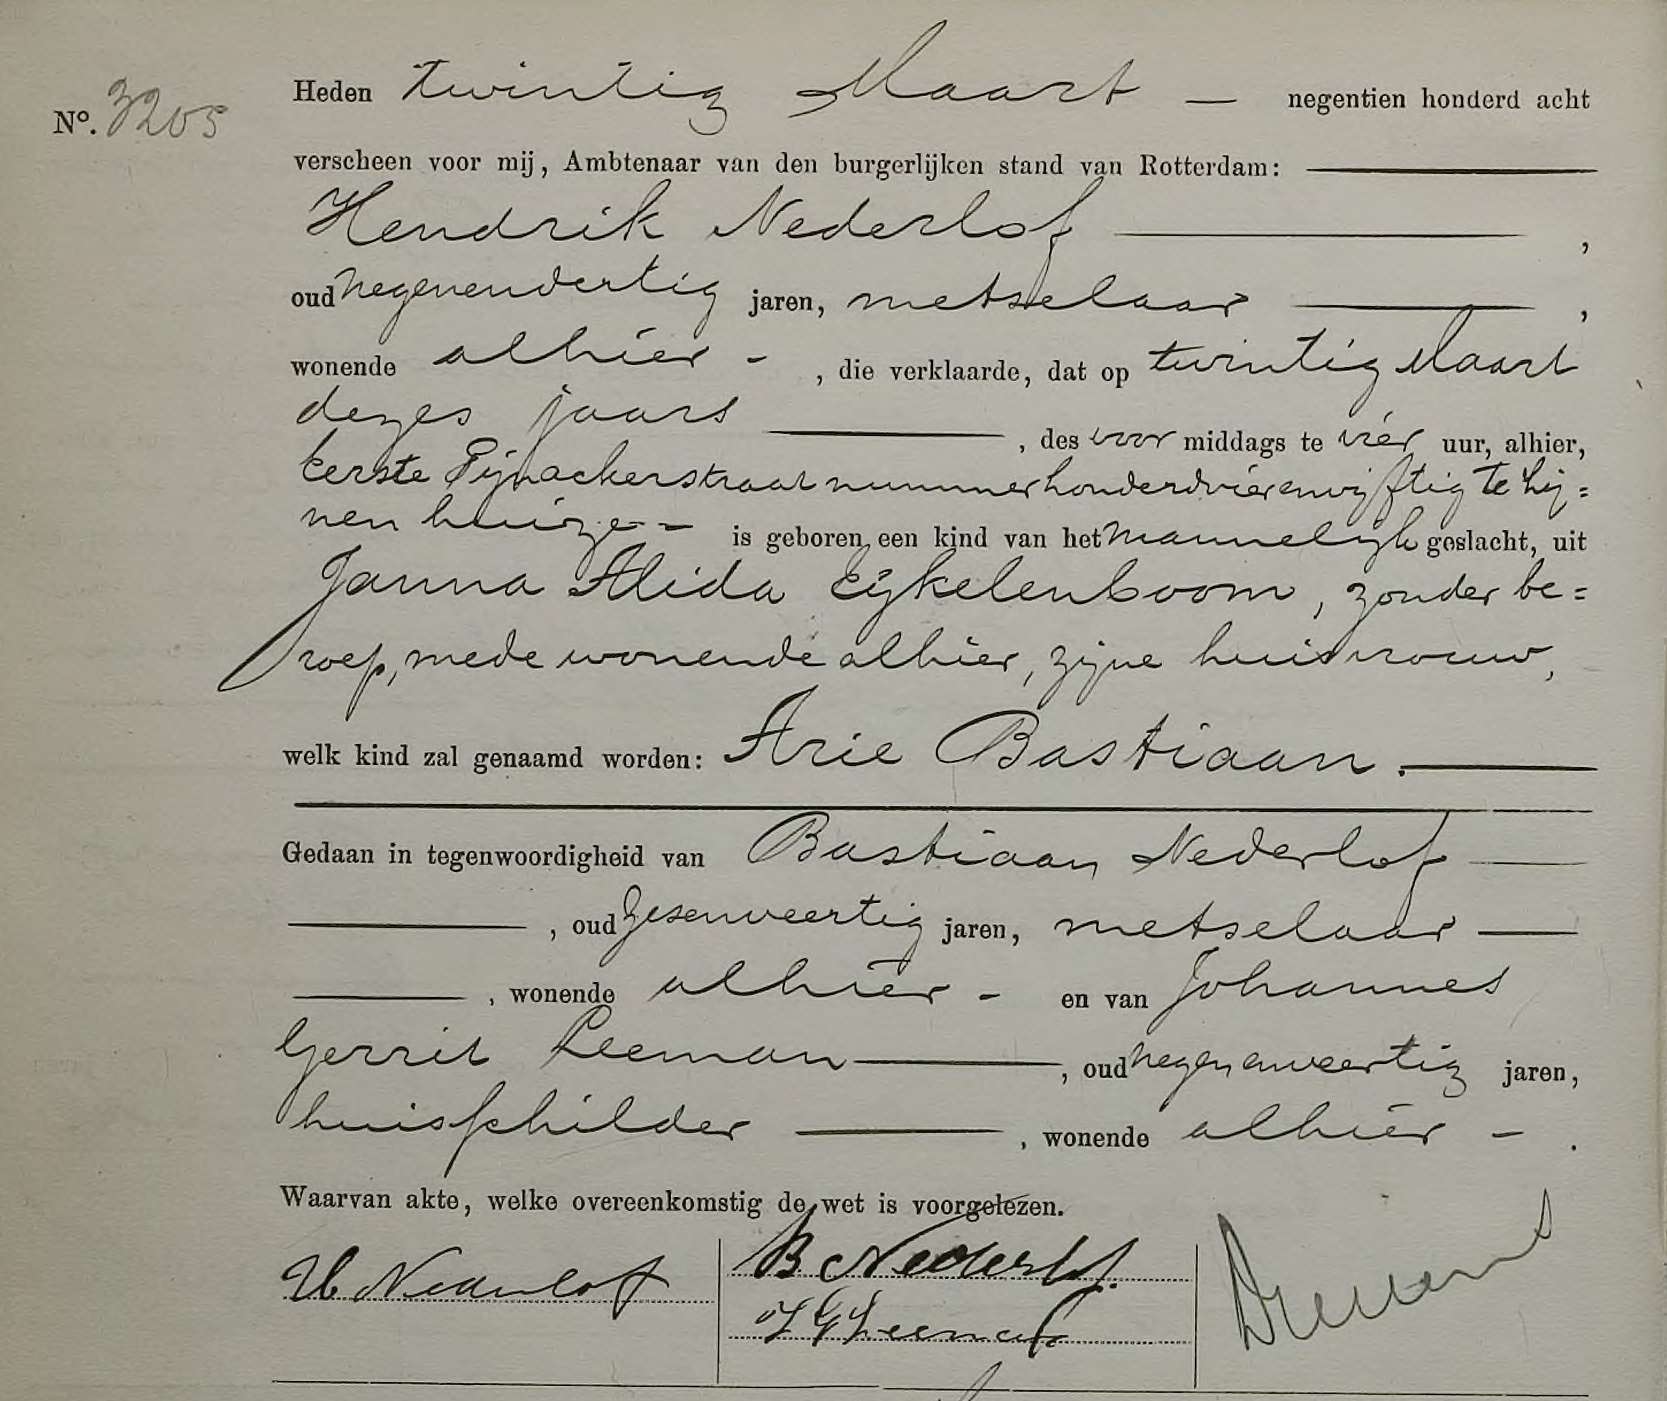 Nº. 3205
Heden twintig Maart — negentien honderd acht
verscheen voor mij, Ambtenaar van den burgerlijken stand van Rotterdam:
Hendrik Nederlof ,
oud negenendertig jaren, metselaar ,
wonende alhier - , die verklaarde, dat op twintig Maart
dezes jaars , des voor middags te vier uur, alhier,
Eerste Pijnackerstraat nummer honderdvierenvijftig te zij=
nen huize - is geboren een kind van het mannelijk geslacht, uit
Janna Alida Eijkelenboom, zonder be=
roep, mede wonende alhier, zijne huisvrouw,
welk kind zal genaamd worden: Arie Bastiaan.
Gedaan in tegenwoordigheid van Bastiaan Nederlof
, oud zesenveertig jaren, metselaar
, wonende alhier - en van Johannes
Gerrit Leeman , oud negenenveertig jaren,
huisschilder , wonende alhier - .
Waarvan akte, welke overeenkomstig de wet is voorgelezen.
H Nederlof
B Nederlof.
J G Leeman